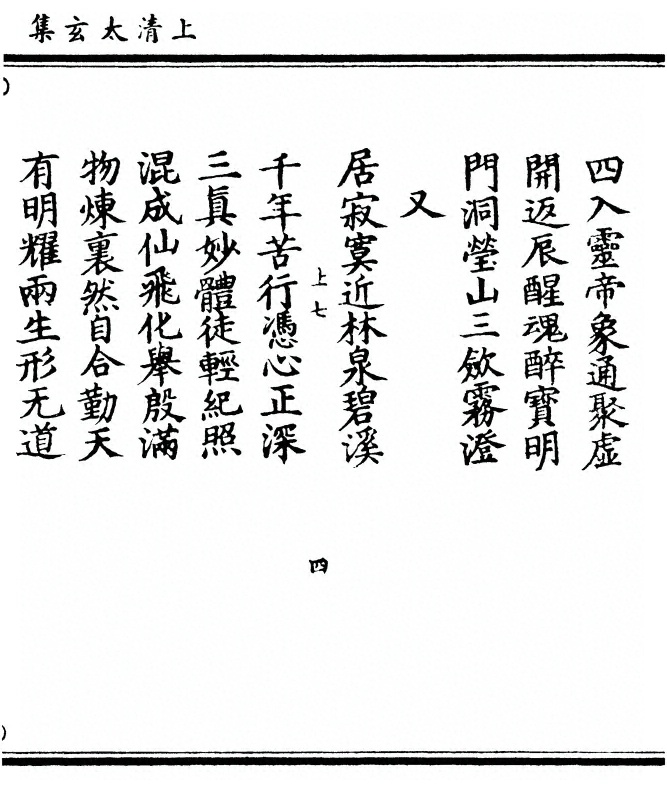 上清太玄集
四入靈帝象通聚虛
開返辰醒魂醉寶明
門洞瑩山三斂霧澄
又
居寂寞近林泉碧溪
上七
千年苦行憑心正深
三眞妙體徒輕紀照
混成仙飛化舉殷滿
物煉裏然自合勤天
有明耀兩生形无道
四